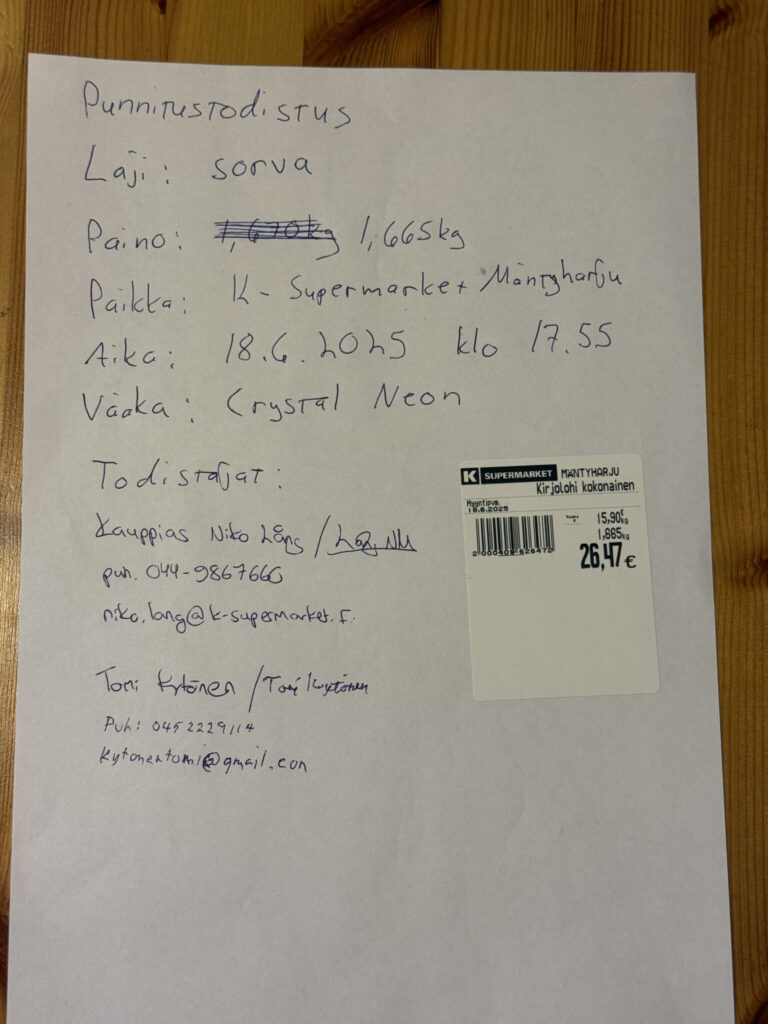 Punnitustodistus
Laji: sorva
Paino: 1,670kg 1,665kg
Paikka: K-Supermarket Mäntyharju
Aika: 18.6.2025 klo 17.55
Vaaka: Crystal Neon
Todistajat:
Kauppias Niko Lång /
puh. 044-9867660
niko.lang@k-supermarket.f.
Tomi Kytönen / Tomi Kytönen
Puh: 0452229114
kytonentomi@gmail.con
K SUPERMARKET MÄNTYHARJU
Kirjolohi kokonainen
Myyntipvm.
18.6.2025
15,90€/kg
1,665kg
26,47€
2 000409 626472